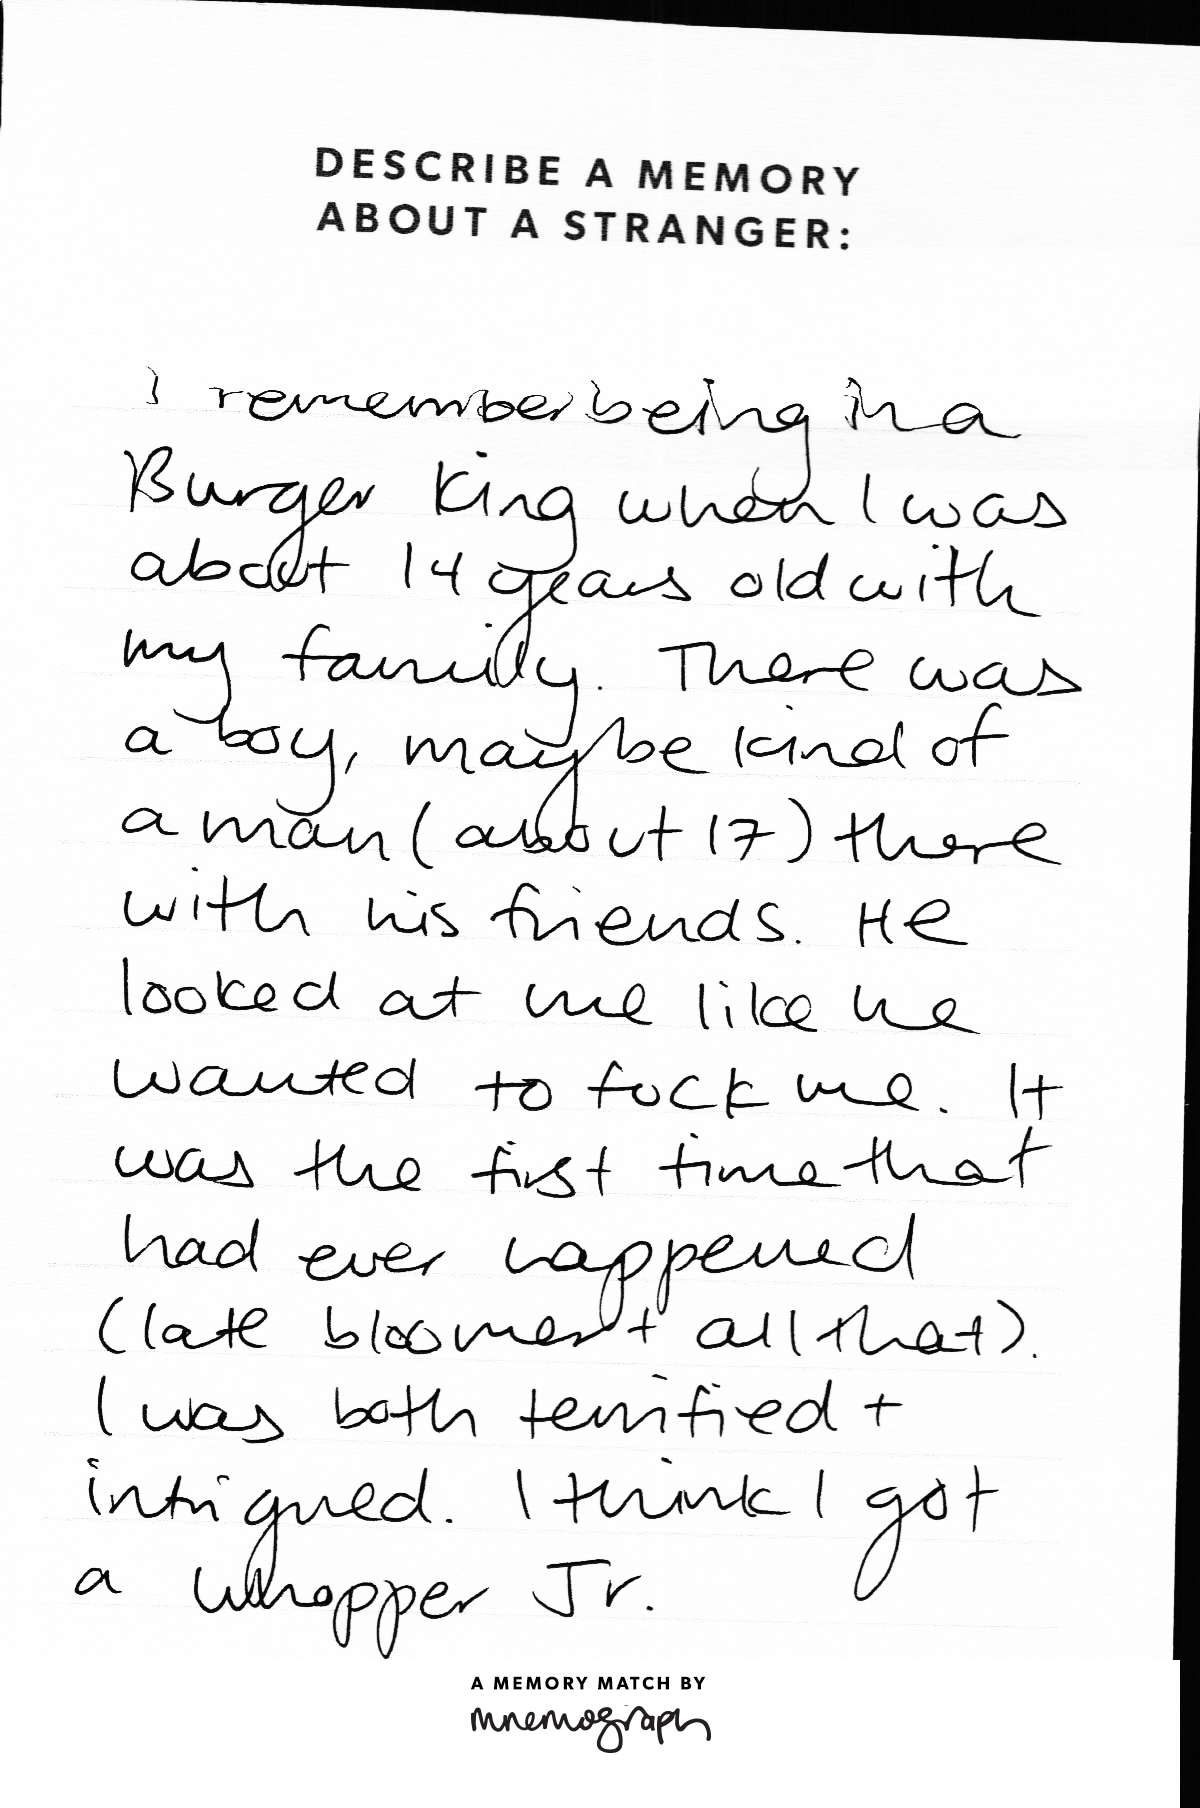 DESCRIBE A MEMORY
ABOUT A STRANGER:
I remember being in a
Burger King when I was
about 14 years old with
my family. There was
a boy, maybe kind of
a man (about 17) there
with his friends. He
looked at me like he
wanted to fuck me. It
was the first time that
had ever happened
(late bloomer + all that).
I was both terrified +
intrigued. I think I got
a whopper Jr.
A MEMORY MATCH BY
mnemograph